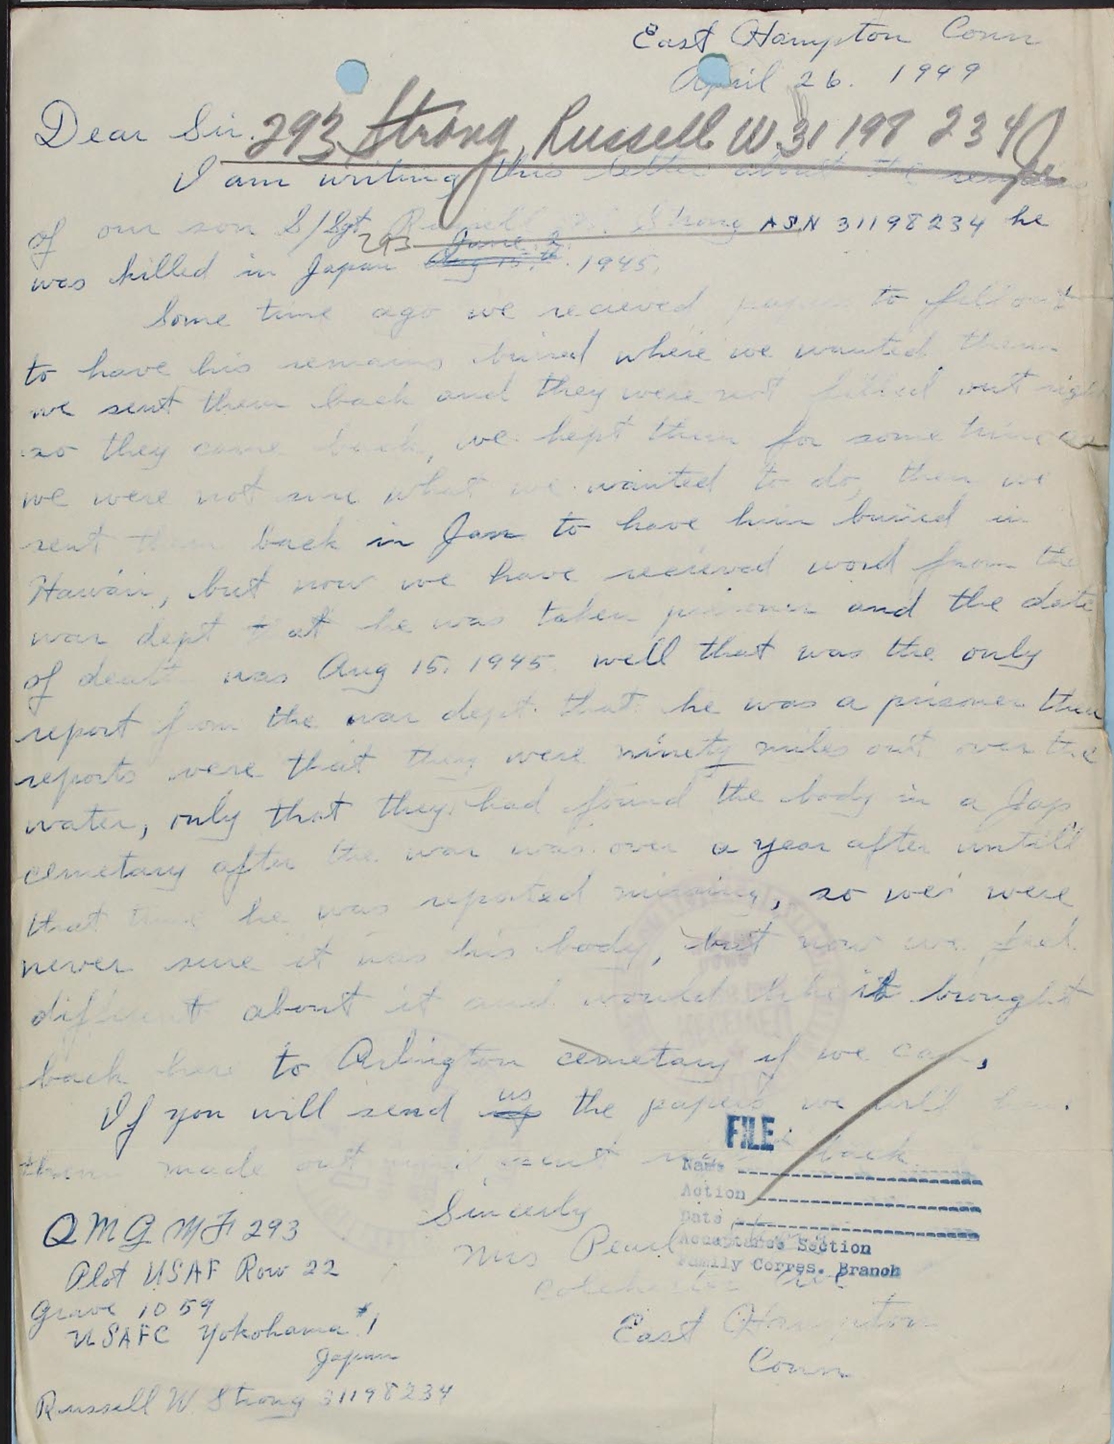 East Hampton Conn
April 26. 1949
Dear Sir.
293 Strong, Russell W 31 198 234
I am writing this letter about the remains
of our son S/Sgt Russell W. Strong ASN 31198234 he
293 June 2
was killed in Japan Aug 15th 1945.
Some time ago we recieved papers to fill out
to have his remains buired where we wanted them
we sent them back and they were not filled out right
so they came back, we kept them for some time as
we were not sure what we wanted to do, then we
sent them back in Jan to have him buried in
Hawaii, but now we have recieved word from the
war dept that he was taken prisoner and the date
of death was Aug 15, 1945 well that was the only
report from the war dept. that he was a prisoner their
reports were that they were ninety miles out over the
water, only that they had found the body in a Jap
cemetary after the war was over a year after untill
that time he was reported missing, so we were
never sure it was his body, but now we feel
different about it and would like it brought
back here to Arlington cemetary if we can,
If you will send us the papers we will have
them made out and sent right back
Sincerly
Mrs Pearl
Colchester Ave
East Hampton
Conn
FILE
Name
Action
Date
Acceptance Section
Family Corres. Branch
QMGMF 293
Plot USAF Row 22
Grave 1059
USAFC Yokohama #1
Japan
Russell W. Strong 31198234